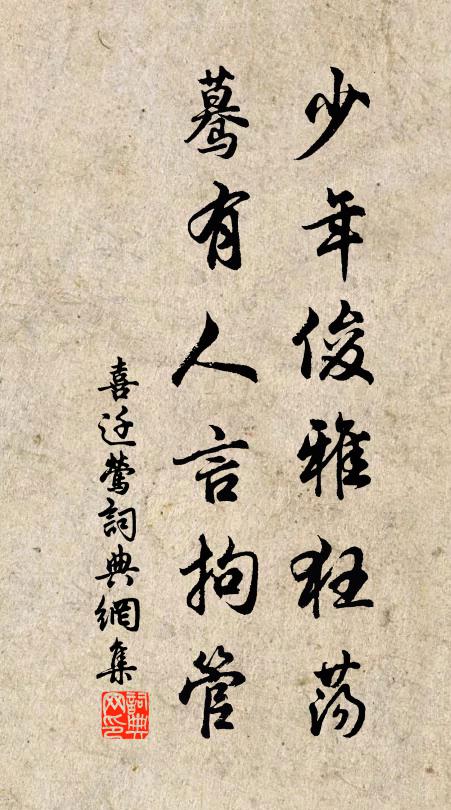 少年俊雅狂荡
蓦有人言拘管
喜迁莺詞典網集
詞典网印